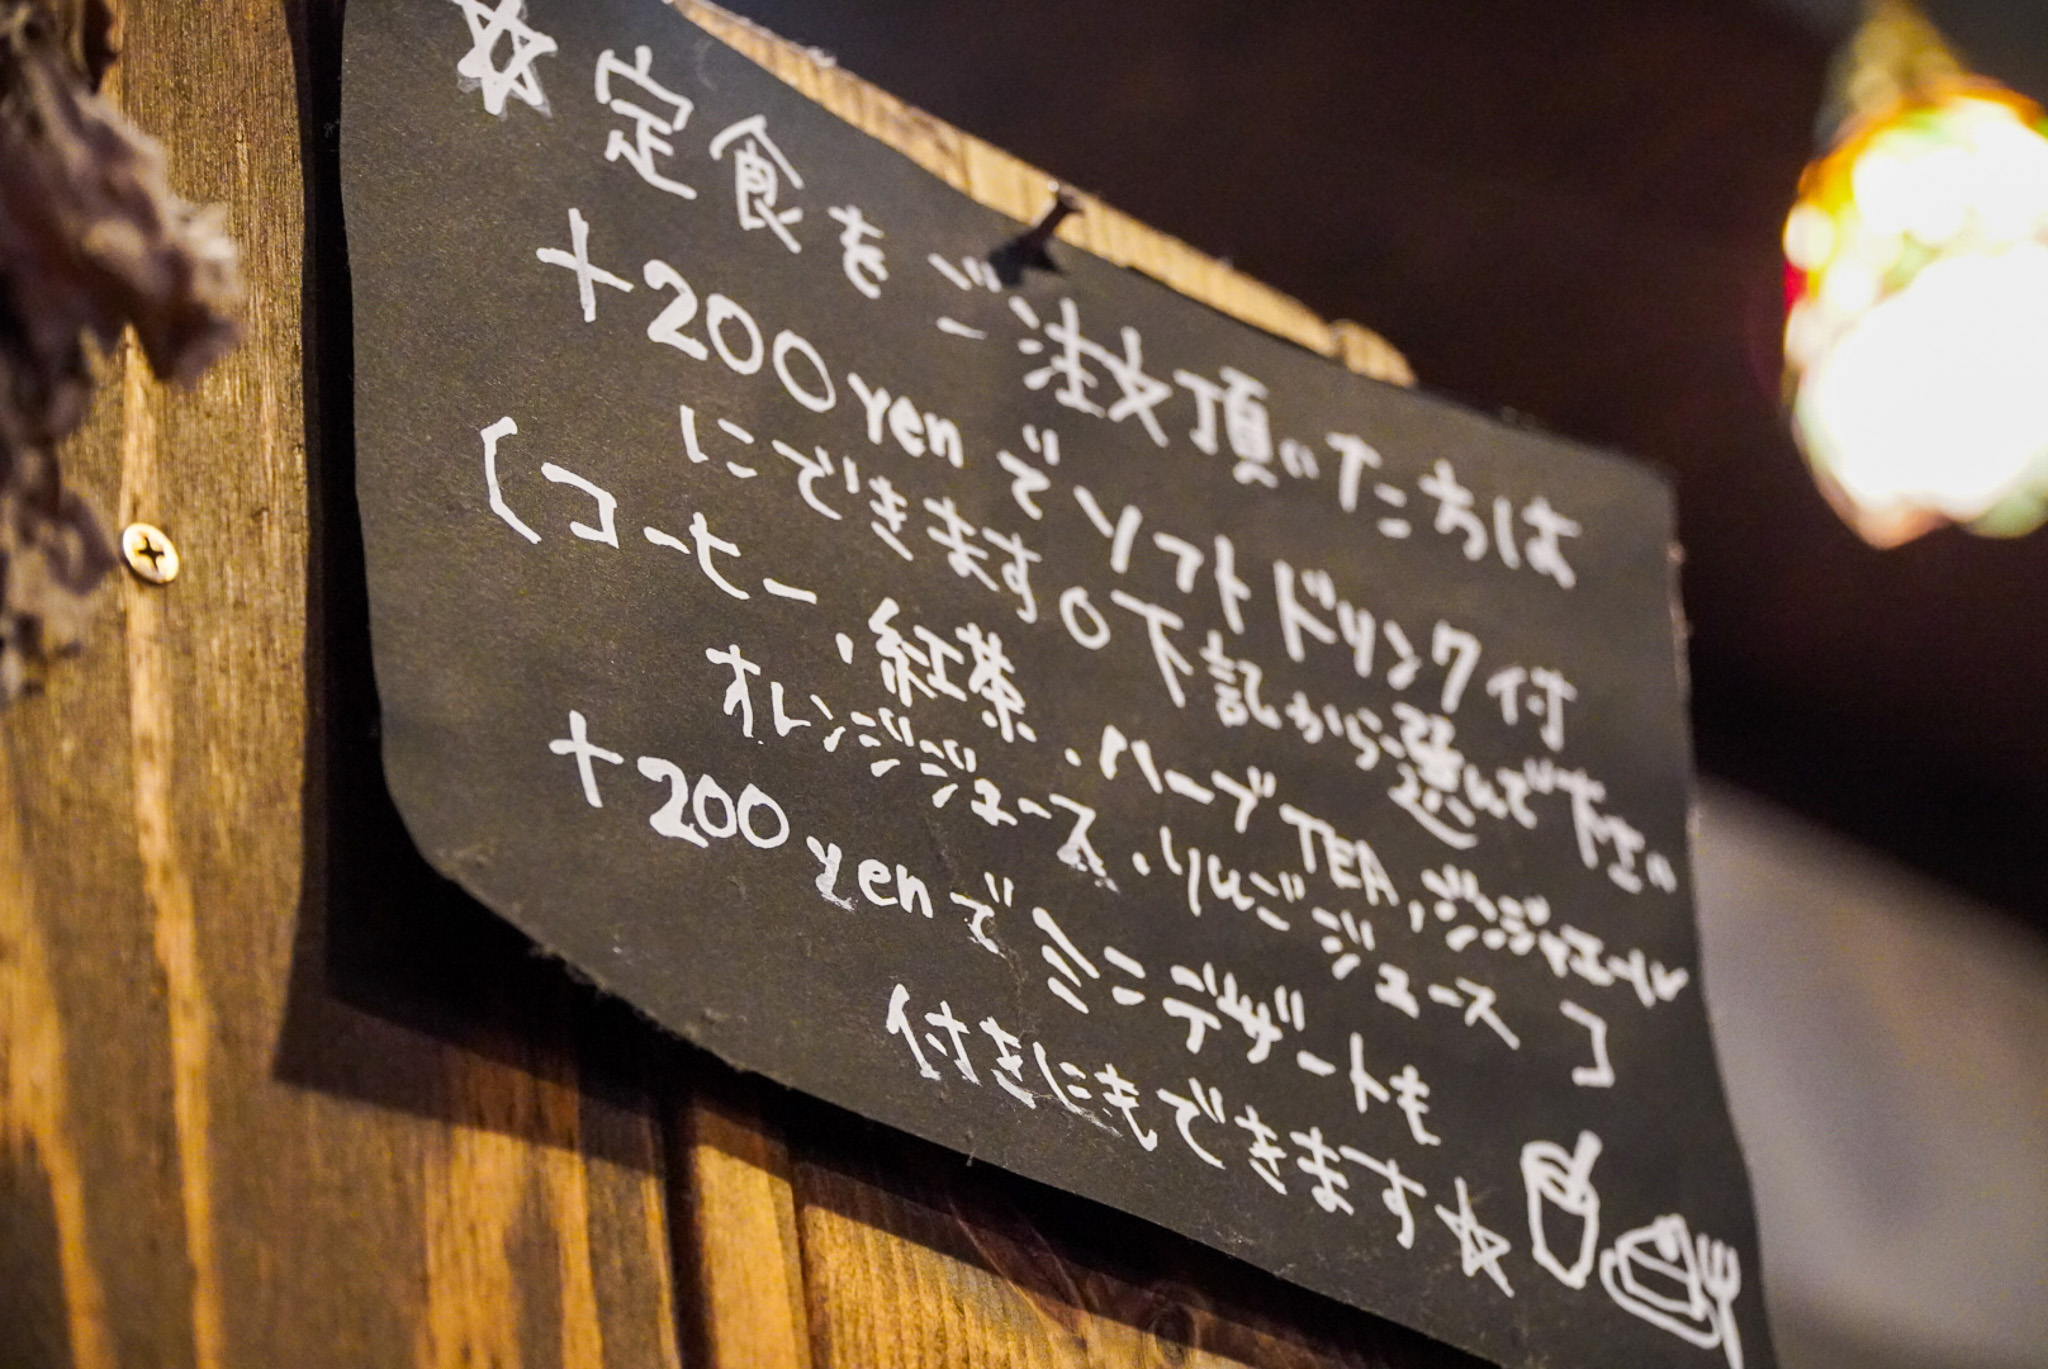 ☆定食をご注文頂いた方は
+200yenでソフトドリンク付
にできます。下記から選んで下さい
(コーヒー・紅茶・ハーブTEA・ジンジャエール
オレンジジュース・りんごジュース)
+200yenでミニデザートも
付きにもできます☆